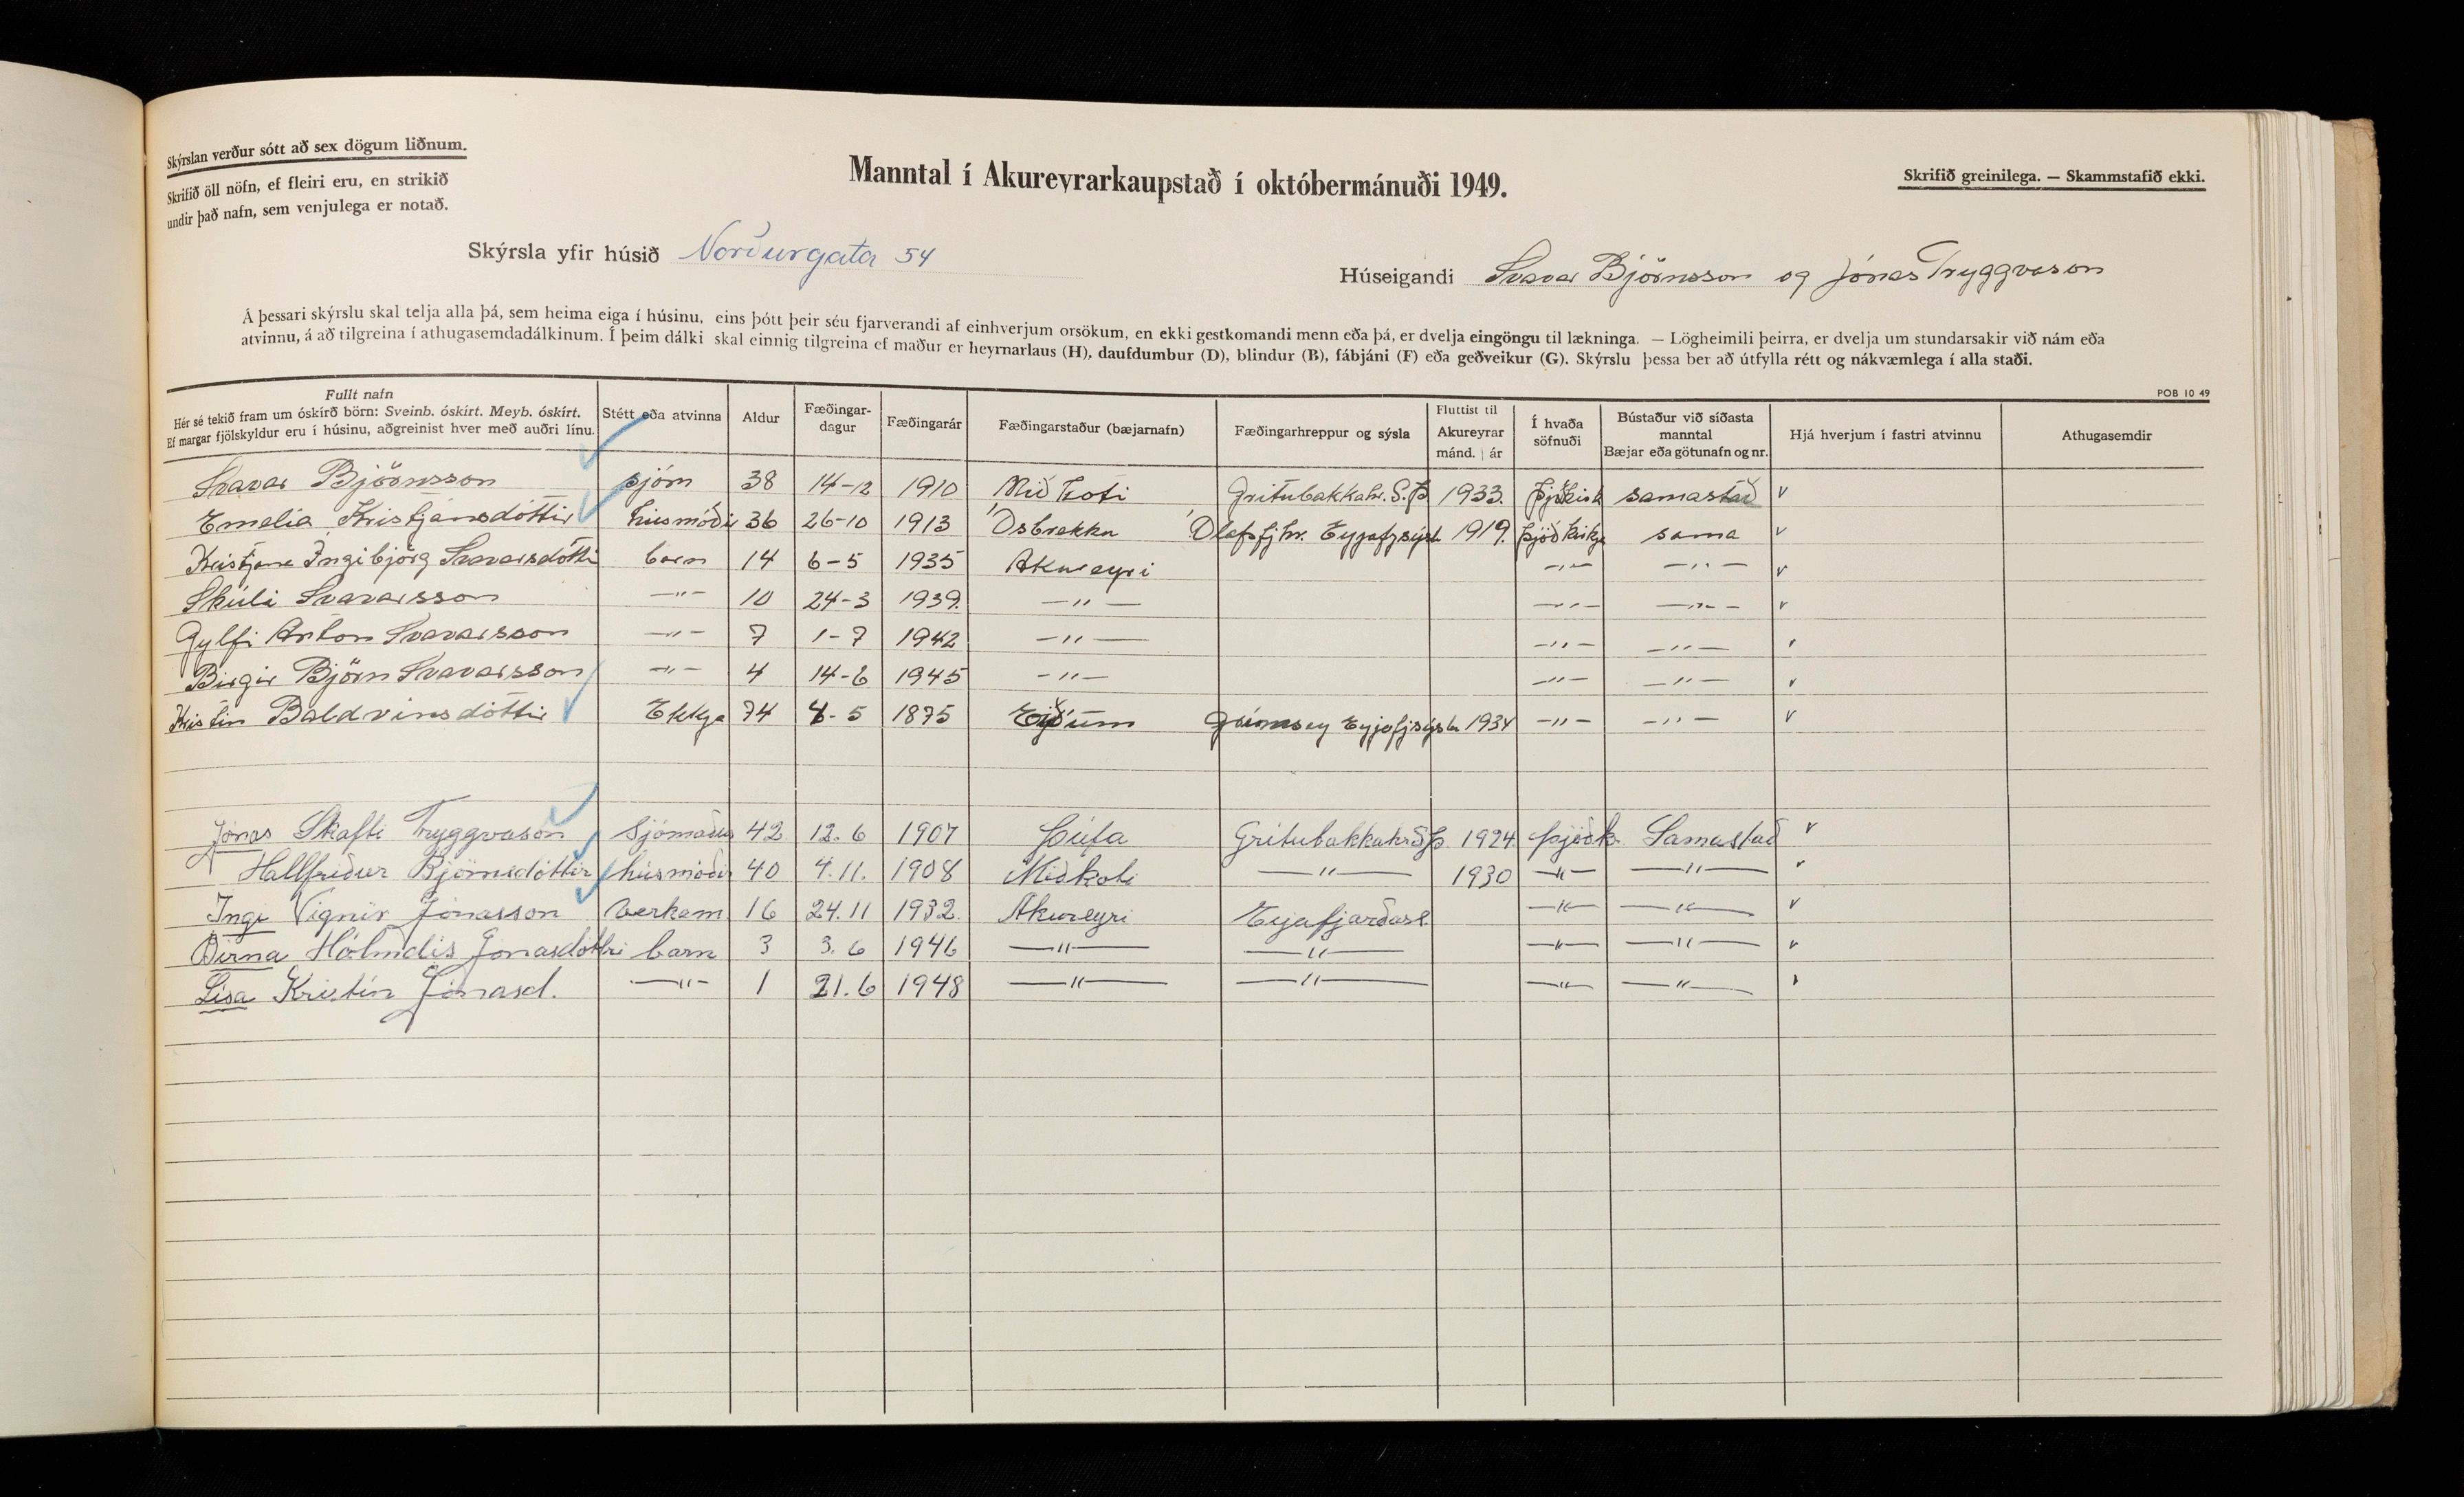 Skýrslan verður sótt að sex dögum liðnum.
Skrifið öll nöfn, ef fleiri eru, en strikið
undir það nafn, sem venjulega er notað.
Manntal í Akureyrarkaupstað í októbermánuði 1949.
Skrifið greinilega. — Skammstafið ekki.
Skýrsla yfir húsið Norðurgata 54
Húseigandi Svavar Björnsson og Jónas Tryggvason
Á þessari skýrslu skal telja alla þá, sem heima eiga í húsinu, eins þótt þeir séu fjarverandi af einhverjum orsökum, en ekki gestkomandi menn eða þá, er dvelja eingöngu til lækninga. — Lögheimili þeirra, er dvelja um stundarsakir við nám eða
atvinnu, á að tilgreina í athugasemdadálkinum. Í þeim dálki skal einnig tilgreina ef maður er heyrnarlaus (H), daufdumbur (D), blindur (B), fábjáni (F) eða geðveikur (G). Skýrslu þessa ber að útfylla rétt og nákvæmlega í alla staði.
POB 10 49
Fullt nafn
Hér sé tekið fram um óskírð börn: Sveinb. óskírt. Meyb. óskírt.
Ef margar fjölskyldur eru í húsinu, aðgreinist hver með auðri línu.
Stétt eða atvinna
Aldur
Fæðingar-
dagur
Fæðingarár
Fæðingarstaður (bæjarnafn)
Fæðingarhreppur og sýsla
Fluttist til
Akureyrar
mánd. | ár
Í hvaða
söfnuði
Bústaður við síðasta
manntal
Bæjar eða götunafn og nr.
Hjá hverjum í fastri atvinnu
Athugasemdir
Svavar Björnsson sjóm 38 14-12 1910 Mið koti Gritubakkahr. S.Þ 1933. samastað v
Emelía Kristjánsdóttir húsmóðir 36 26-10 1913 Ósbrekku Ólafsfj hr. Eyjafjsýsl 1919. þjóðkirkja sama v
Kristjana Ingibjörg Svavarsdótti barn 14 6-5 1935 Akureyri —"— —"— v
Skúli Svavarsson —"— 10 24-3 1939. —"— —"— —"— v
Gylfi Anton Svavarsson —"— 7 1-7 1942 —"— —"— —"—
Birgir Björn Svavarsson —"— 4 14-6 1945 —"— —"— —"— v
Kristín Baldvinsdóttir Ekkja 74 5 1875 Grímsey Eyjafjsýsla 1934 —"— —"— v
Jónas Skafti Tryggvason Sjómaður 42 12.6 1907 Þúfa Gritubakkahr SÞ 1924. þjóðk. Samastað v
Hallfríður Björnsdóttir húsmóðir 40 4.11. 1908 Miðkoti —"— 1930 —"— —"— v
Ingi Vignir Jónasson Verkam 16 24.11 1932. Akureyri Eyjafjarðars. —"— —"— v
Birna Hólmdís Jónasdóttir barn 3 3.6 1946 —"— —"— —"— —"— v
Lísa Kristín Jónasd. —"— 1 21.6 1948 —"— —"— —"— —"—